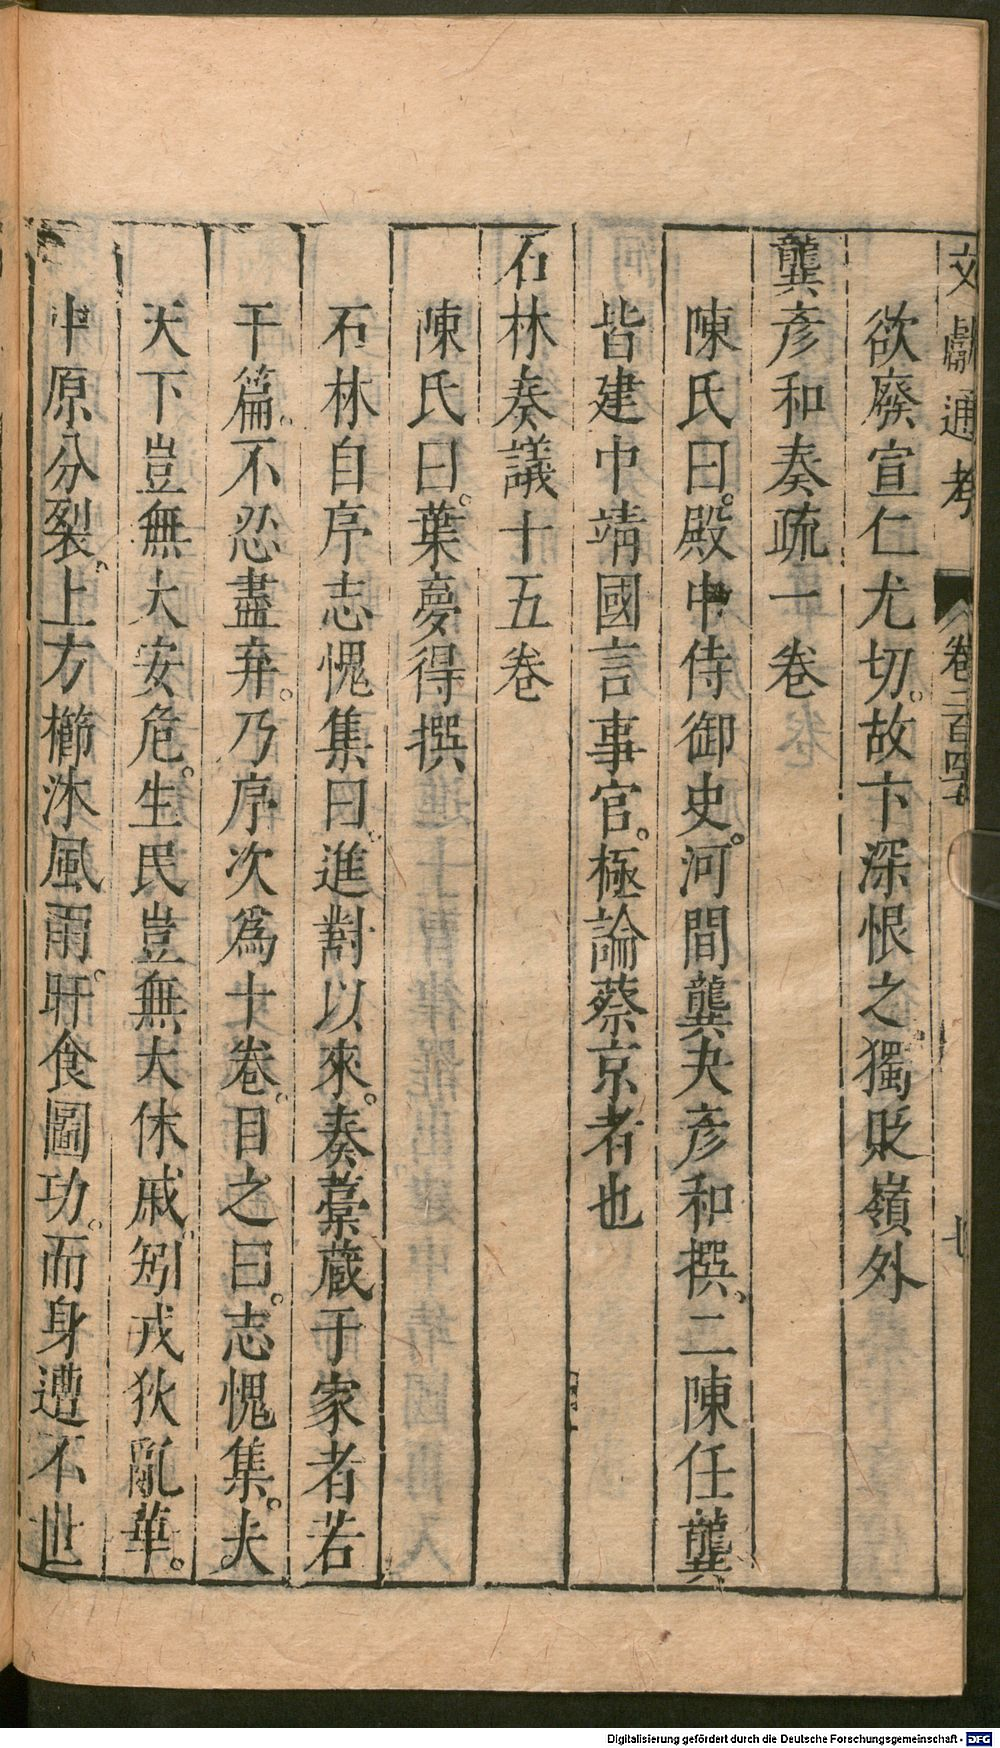 文獻通考 卷二百四十七 七
欲廢宣仁尤切。故卞深恨之獨貶嶺外
龔彥和奏疏一卷
陳氏曰。殿中侍御史。河間龔夬彥和撰。二陳任龔
皆建中靖國言事官。極論蔡京者也
石林奏議十五卷
陳氏曰。葉夢得撰
石林自序志愧集曰。進對以來。奏藁蔵于家者若
干篇。不忍盡弃。乃序次爲十卷。目之曰。志愧集。夫
天下豈無大安危。生民豈無大休戚。矧戎狄亂華。
中原分裂。上方櫛沐風雨。旰食圖功。而身遭不世
Digitalisierung gefördert durch die Deutsche Forschungsgemeinschaft - DFG